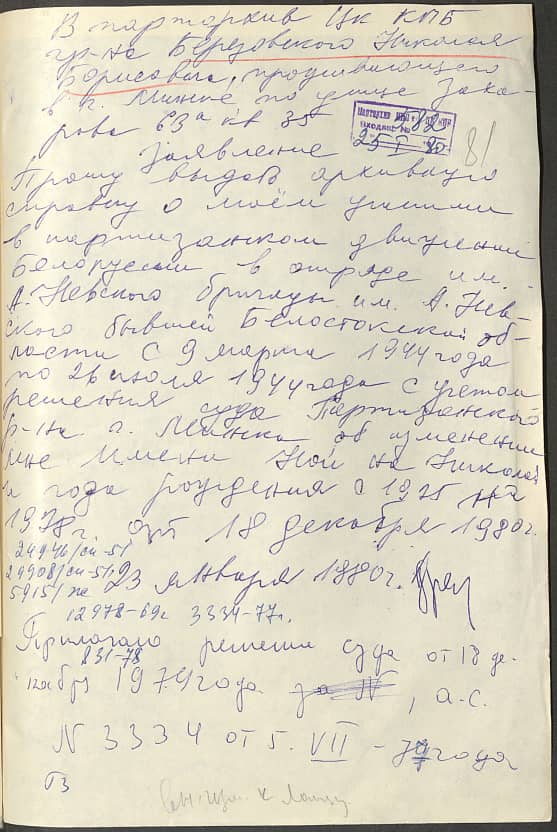 В партархив ЦК КПБ
гр-на Березовского Николая
Борисовича, проживающего
в г. Минске по улице Заха-
рова 63а кв 35
582
25 I 80
81
Заявление
Прошу выдать архивную
справку о моём участии
в партизанском движении
Белоруссии в отряде им.
А. Невского бригады им. А. Нев-
ского бывшей Белостокской об-
ласти с 9 марта 1944 года
по 26 июля 1944 года с учетом
решения суда Партизанского
р-на г. Минска об изменении
мне имени Ной на Николай
и года рождения с 1925 на
от 18 декабря 1980 г.
24946/сп-51
24908/сп-51
5915/
23 января 1980 г.
12978-69г 3334-77г.
831-78
Прилагаю решение суда от 18 де-
кабря 1979 года за №, а-с.
N 3334 от 5. VII - 77 года